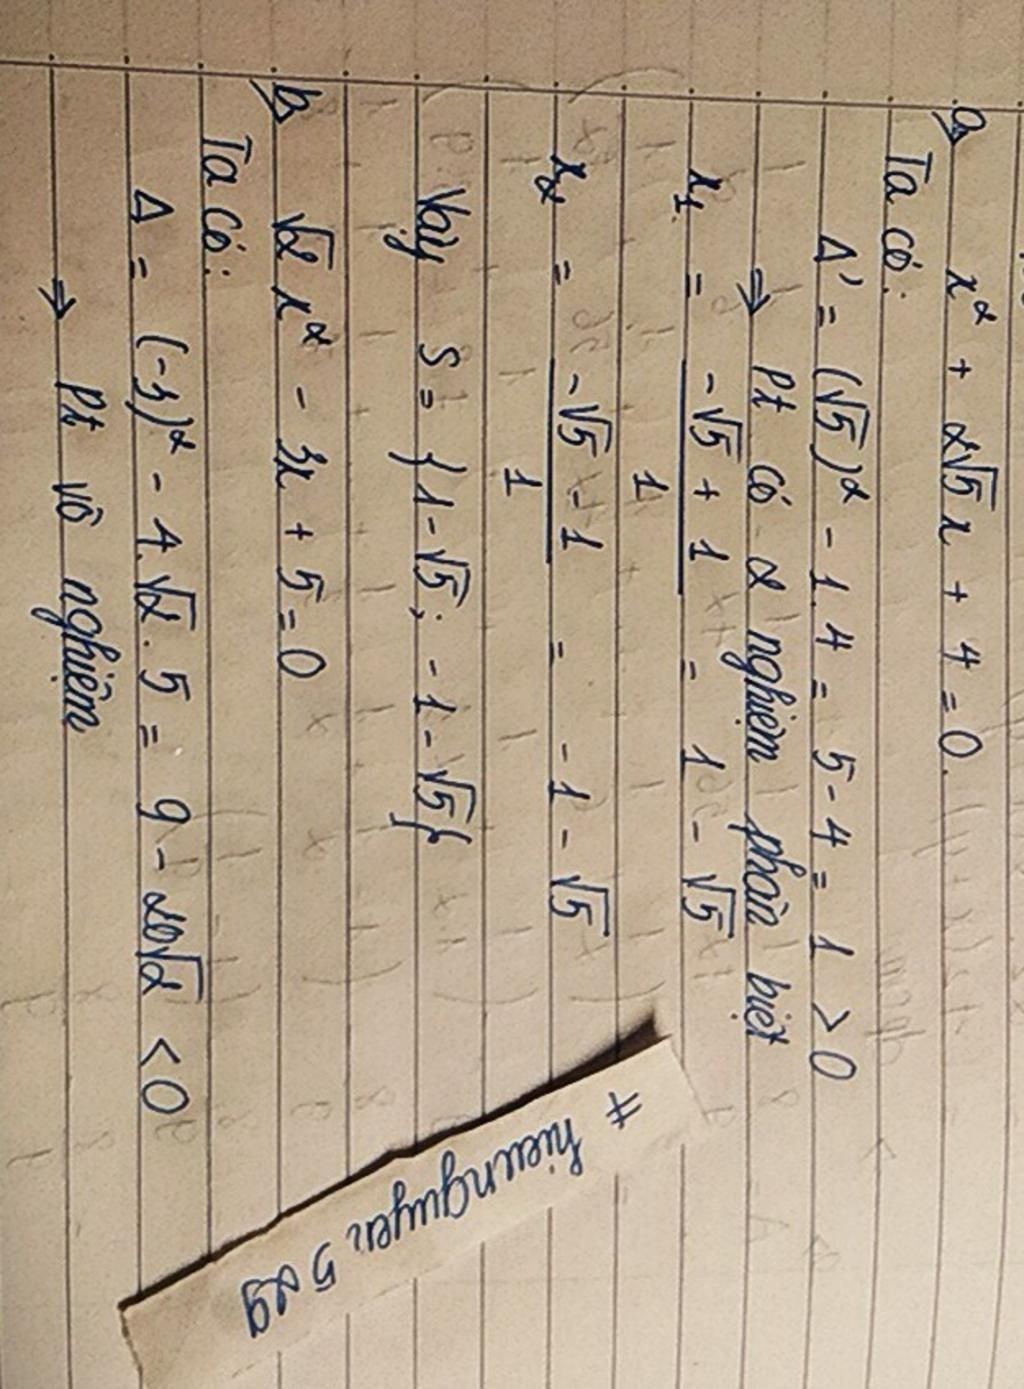 a, x² + 2√5x + 4 = 0.
Ta có:
Δ' = (√5)² - 1.4 = 5 - 4 = 1 > 0
⇒ Pt có 2 nghiệm phân biệt
x₁ = (-√5 + 1)/1 = 1 - √5
x₂ = (-√5 - 1)/1 = -1 - √5
Vậy S = {1-√5; -1-√5}
b, √2 x² - 3x + 5 = 0
Ta có:
Δ = (-3)² - 4.√2.5 = 9 - 20√2 < 0
⇒ Pt vô nghiệm
# hieunguyen 529